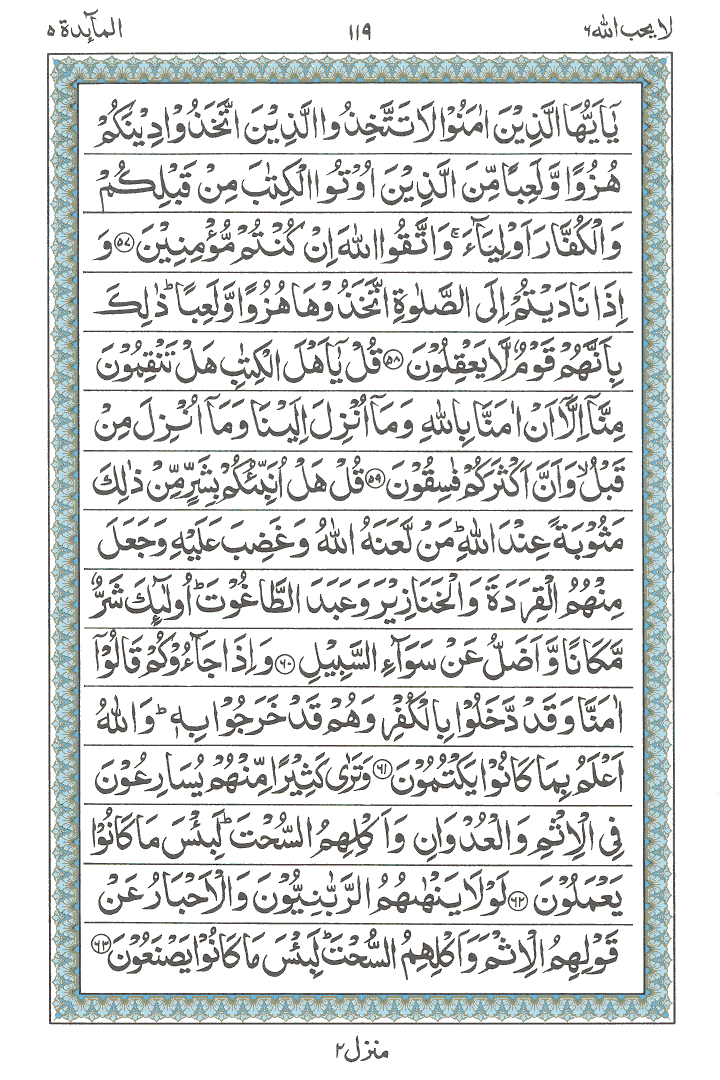 لا يحب الله ٦ ١١٩ المآئدة ٥
يٰۤاَيُّهَا الَّذِيْنَ اٰمَنُوْا لَا تَتَّخِذُوا الَّذِيْنَ اتَّخَذُوْا دِيْنَكُمْ
هُزُوًا وَّلَعِبًا مِّنَ الَّذِيْنَ اُوْتُوا الْكِتٰبَ مِنْ قَبْلِكُمْ
وَالْكُفَّارَ اَوْلِيَآءَ ۚ وَاتَّقُوا اللّٰهَ اِنْ كُنْتُمْ مُّؤْمِنِيْنَ ﴿۵۷﴾ وَ
اِذَا نَادَيْتُمْ اِلَى الصَّلٰوةِ اتَّخَذُوْهَا هُزُوًا وَّلَعِبًا ؕ ذٰلِكَ
بِاَنَّهُمْ قَوْمٌ لَّا يَعْقِلُوْنَ ﴿۵۸﴾ قُلْ يٰۤاَهْلَ الْكِتٰبِ هَلْ تَنْقِمُوْنَ
مِنَّاۤ اِلَّاۤ اَنْ اٰمَنَّا بِاللّٰهِ وَمَاۤ اُنْزِلَ اِلَيْنَا وَمَاۤ اُنْزِلَ مِنْ
قَبْلُ ۙ وَاَنَّ اَكْثَرَكُمْ فٰسِقُوْنَ ﴿۵۹﴾ قُلْ هَلْ اُنَبِّئُكُمْ بِشَرٍّ مِّنْ ذٰلِكَ
مَثُوْبَةً عِنْدَ اللّٰهِ ؕ مَنْ لَّعَنَهُ اللّٰهُ وَغَضِبَ عَلَيْهِ وَجَعَلَ
مِنْهُمُ الْقِرَدَةَ وَالْخَنَازِيْرَ وَعَبَدَ الطَّاغُوْتَ ؕ اُولٰٓئِكَ شَرٌّ
مَّكَانًا وَّاَضَلُّ عَنْ سَوَآءِ السَّبِيْلِ ﴿۶۰﴾ وَاِذَا جَآءُوْكُمْ قَالُوْۤا
اٰمَنَّا وَقَدْ دَّخَلُوْا بِالْكُفْرِ وَهُمْ قَدْ خَرَجُوْا بِهٖ ؕ وَاللّٰهُ
اَعْلَمُ بِمَا كَانُوْا يَكْتُمُوْنَ ﴿۶۱﴾ وَتَرٰى كَثِيْرًا مِّنْهُمْ يُسَارِعُوْنَ
فِى الْاِثْمِ وَالْعُدْوَانِ وَاَكْلِهِمُ السُّحْتَ ؕ لَبِئْسَ مَا كَانُوْا
يَعْمَلُوْنَ ﴿۶۲﴾ لَوْلَا يَنْهٰىهُمُ الرَّبّٰنِيُّوْنَ وَالْاَحْبَارُ عَنْ
قَوْلِهِمُ الْاِثْمَ وَاَكْلِهِمُ السُّحْتَ ؕ لَبِئْسَ مَا كَانُوْا يَصْنَعُوْنَ ﴿۶۳﴾
منزل ٢